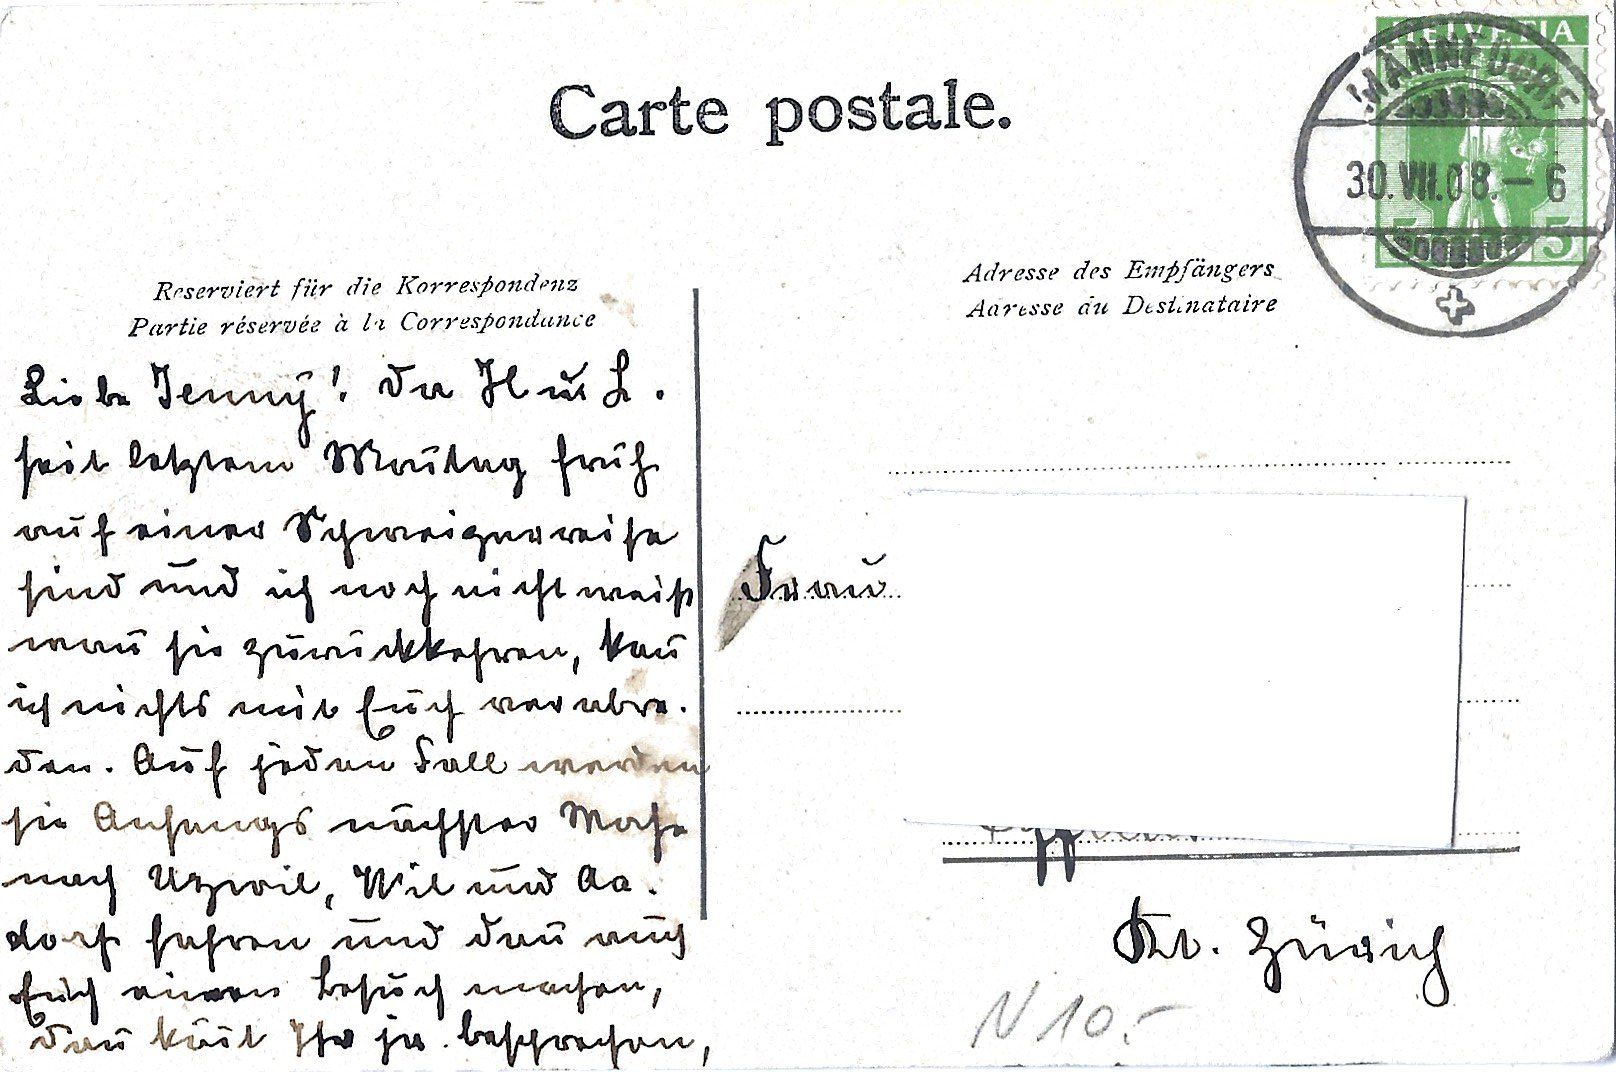 Carte postale.
HELVETIA
MÄNNEDORF
30.VII.08.–6
5 5
Reserviert für die Korrespondenz
Partie réservée à la Correspondance
Adresse des Empfängers
Adresse du Destinataire
Liebe Jenny! Da H u. L.
seit letztem Montag früh
auf einer Schweizerreise
sind und ich noch nicht weiß
wan̄ sie zurückkehren, kan̄
ich nichts mit Euch verabre-
den. Auf jeden Fall werden
sie Anfangs nächster Woche
nach Uzwil, Wil und Aa-
dorf fahren und dan̄ auch
Euch einen Besuch machen,
dan̄ kön̄t Ihr ja besprechen,
Frau
Kt. Zürich
N 10.–